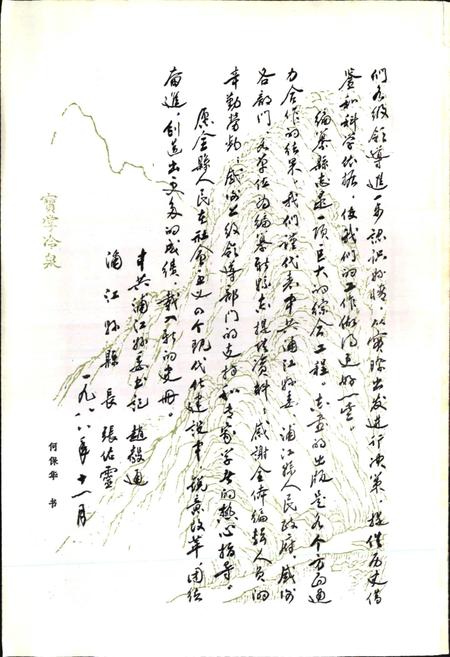 们各级领导进一步认识县情，从实际出发进行决策，提供历史借
鉴和科学依据，使我们的工作做得更好一些。
编纂县志是一项巨大的综合工程。志书的出版是各个方面通
力合作的结果。我们谨代表中共浦江县委、浦江县人民政府，感谢
各部门、各单位为编纂新县志提供资料；感谢全体编辑人员的
辛勤劳动；感谢上级领导部门的支持和专家学者的热心指导。
愿全县人民在社会主义四个现代化建设中，锐意改革，团结
奋进，创造出更多的成绩，载入新的史册。
中共浦江县委书记 赵毅通
浦江县县长 张佑灵
一九八八年十一月
何保华 书
宝掌冷泉